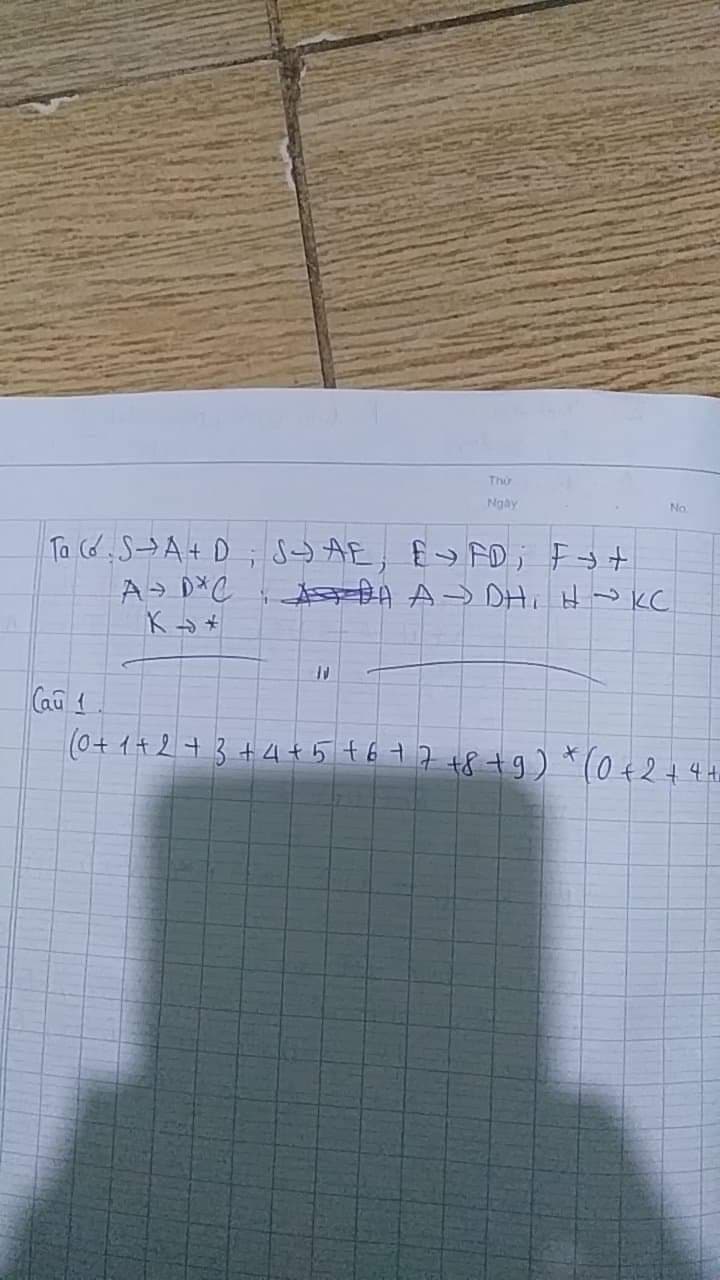 Thứ
Ngày
No.
Ta có: S → A + D ; S → AE ; E → FD ; F → +
A → D*C ; A → DH, H → KC
K → *
Câu 1.
(0+1+2+3+4+5+6+7+8+9)*(0+2+4+